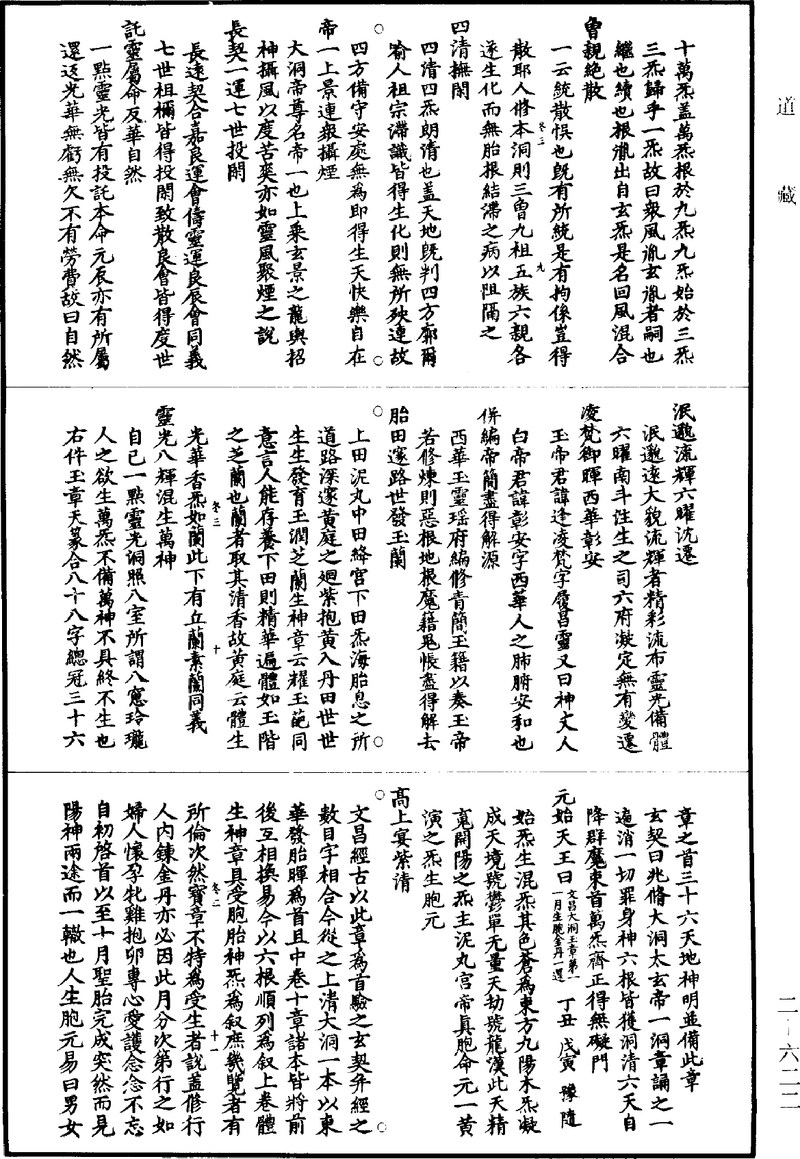 道藏
十萬炁蓋萬炁根於九炁九炁始於三炁
三炁歸乎一炁故曰衆風胤玄胤者嗣也
繼也續也根胤出自玄炁是名回風混合
曾親絶散
一云統散悞也旣有所統是有拘係豈得
散耶人修本洞則三曾九祖五族六親各
遂生化而無胎根結滯之病以阻隔之
四清撫閑
四清四炁朗清也蓋天地旣判四方廓爾
喻人祖宗滯識皆得生化則無所殃連故
四方備守安處無為即得生天快樂自在
帝一上景連衆攝煙
大洞帝尊名帝一也上乘玄景之龍輿招
神攝風以度苦爽亦如靈風聚煙之說
長契一運七世投閑
長遠契合嘉良運會儔靈運良辰會同義
七世祖禰皆得投閑致散良會皆得度世
託靈屬命反華自然
一點靈光皆有投託本命元辰亦有所屬
還返光華無虧無欠不有勞費故曰自然
泯邈流輝六曜沈遷
泯邈遠大貌流輝者精彩流布靈光備體
六曜南斗注生之司六府凝定無有變遷
凌梵御暉西華彰安
玉帝君諱逢凌梵字履昌靈又曰神丈人
白帝君諱彰安字西華人之肺腑安和也
併編帝簡盡得解源
西華玉靈瑶府編修青簡玉籍以奏玉帝
若修煉則惡根地根魔籍鬼帳盡得解去
胎田邃路世發玉蘭
上田泥丸中田絳宮下田炁海胎息之所
道路深邃黄庭之廻紫抱黄入丹田世世
生生發育玉潤芝蘭生神章云耀玉葩同
意言人能存養下田則精華遍體如玉階
之芝蘭也蘭者取其清香故黄庭云體生
光華香炁如蘭此下有丘蘭素蘭同義
靈光八輝混生萬神
自己一點靈光洞照八室所謂八窻玲瓏
人之欲生萬炁不備萬神不具終不生也
右件玉章天篆合八十八字總冠三十六
章之首三十六天地神明並備此章
玄契曰兆脩大洞太玄帝一洞章誦之一
遍消一切罪身神六根皆獲洞清六天自
降群魔束首萬炁齊正得無礙門
元始天王曰 文昌大洞玉章第一 一月生胞金丹一還 丁丑 戊寅 豫 隨
始炁生混炁其色蒼為東方九陽木炁凝
成天境號鬱單无量天劫號龍漢此天精
寬開陽之炁主泥丸宮帝真胞命元一黄
演之炁生胞元
高上宴紫清
文昌經古以此章為首驗之玄契弁經之
數目字相合今從之上清大洞一本以東
華發胎暉為首且中卷十章諸本皆將前
後互相換易今以六根順列為叙上卷體
生神章具受胞胎神炁為叙庶幾覽者有
所倫次然寶章不特為受生者說蓋修行
人内鍊金丹亦必因此月分次第行之如
婦人懷孕牝雞抱卵專心愛護念念不忘
自初啓首以至十月聖胎完成突然而見
陽神兩途而一轍也人生胞元易曰男女
二－六二二